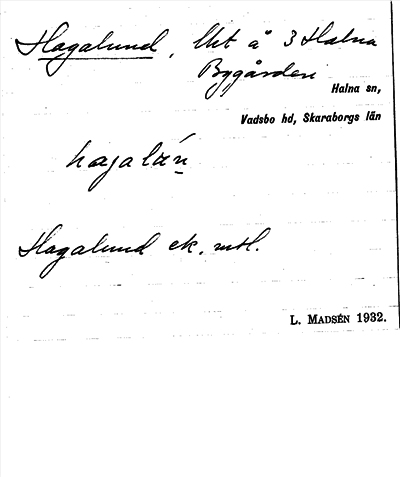 Hagalund, lht å 3 Halna
Bygården
Halna sn,
Vadsbo hd, Skaraborgs län
hagalún
Hagalund ek. mtl.
L. MADSÉN 1932.